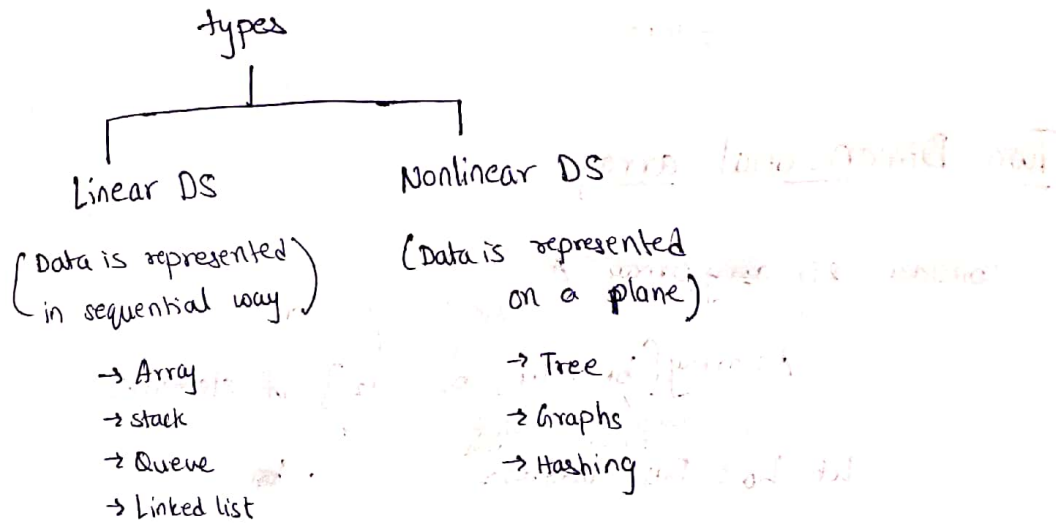 types
Linear DS
(Data is represented
in sequential way.)
→ Array
→ stack
→ Queue
→ Linked list
Nonlinear DS
(Data is represented
on a plane)
→ Tree
→ Graphs
→ Hashing